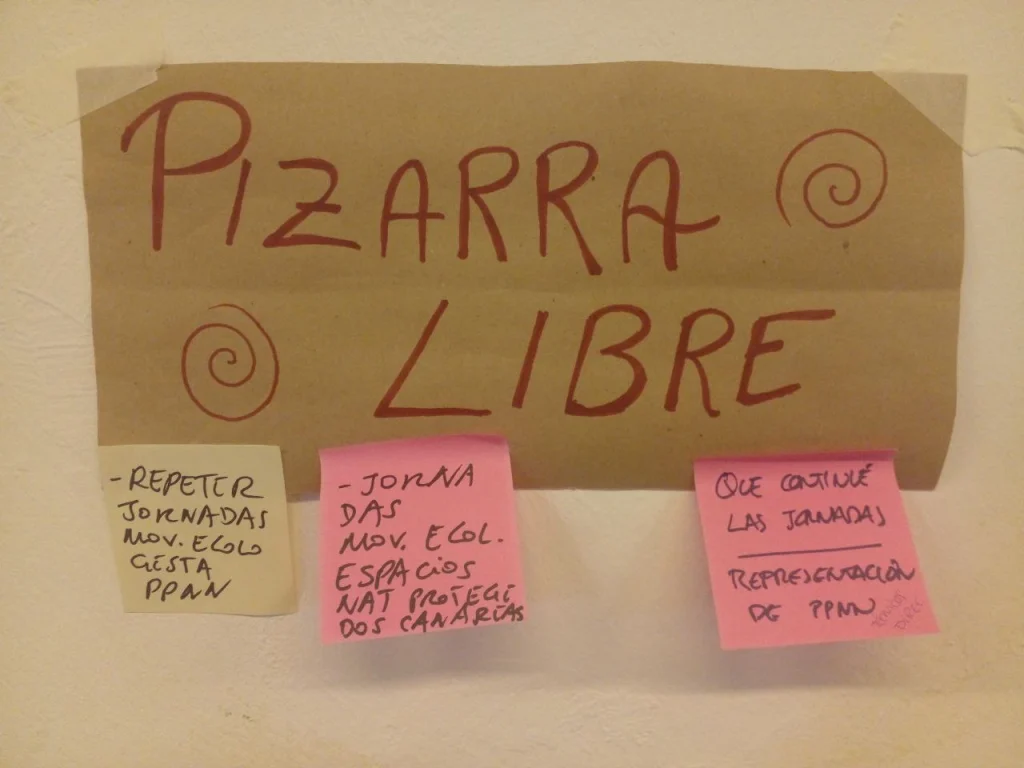 PIZARRA
LIBRE
- REPETER
JORNADAS
MOV. ECOLO
GISTA
PPNN
- JORNA
DAS
MOV. ECOL.
ESPACIOS
NAT PROTEGI
DOS CANARIAS
QUE CONTINUÉ
LAS JORNADAS
REPRESENTACIÓN
DE PPNN